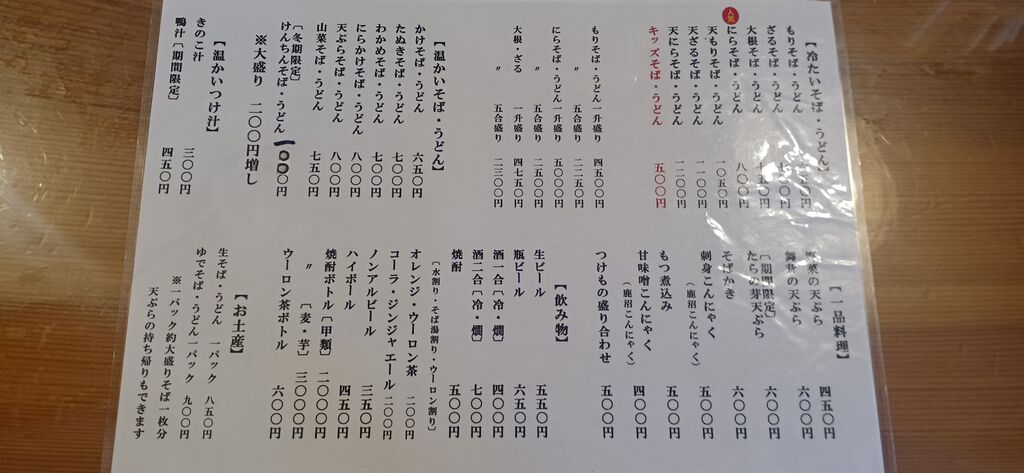 【冷たいそば・うどん】
もりそば・うどん
ざるそば・うどん
大根そば・うどん
人気
にらそば・うどん 八〇〇円
天もりそば・うどん 一〇五〇円
天ざるそば・うどん 一一〇〇円
天にらそば・うどん 一二〇〇円
キッズそば・うどん 五〇〇円
もりそば・うどん 一升盛り 四五〇〇円
〃 五合盛り 二二五〇円
にらそば・うどん 一升盛り 五〇〇〇円
〃 五合盛り 二五〇〇円
大根・ざる 一升盛り 四七五〇円
〃 五合盛り 二三〇〇円
【温かいそば・うどん】
かけそば・うどん 六五〇円
たぬきそば・うどん 七〇〇円
わかめそば・うどん 七〇〇円
にらかけそば・うどん 八〇〇円
天ぷらそば・うどん 八〇〇円
山菜そば・うどん 七五〇円
〔冬期限定〕
けんちんそば・うどん
※大盛り 二〇〇円増し
【温かいつけ汁】
きのこ汁 三〇〇円
鴨汁〔期間限定〕 四五〇円
【一品料理】
野菜の天ぷら 四五〇円
舞茸の天ぷら 六〇〇円
〔期間限定〕
たらの芽天ぷら 六〇〇円
そばがき 六〇〇円
刺身こんにゃく 五〇〇円
(鹿沼こんにゃく)
もつ煮込み 五〇〇円
甘味噌こんにゃく 四〇〇円
(鹿沼こんにゃく)
つけもの盛り合わせ 五〇〇円
【飲み物】
生ビール 五五〇円
瓶ビール 六五〇円
酒一合〔冷・燗〕 四〇〇円
酒二合〔冷・燗〕 七〇〇円
焼酎 五〇〇円
〔水割り・そば湯割り・ウーロン割り〕
オレンジ・ウーロン茶 二〇〇円
コーラ・ジンジャエール 二〇〇円
ノンアルビール 三五〇円
ハイボール 四五〇円
焼酎ボトル〔甲類〕 二〇〇〇円
〃 〔麦・芋〕 三〇〇〇円
ウーロン茶ボトル 六〇〇円
【お土産】
生そば・うどん 一パック 八五〇円
ゆでそば・うどん一パック 九〇〇円
※一パック約大盛りそば一枚分
天ぷらの持ち帰りもできます